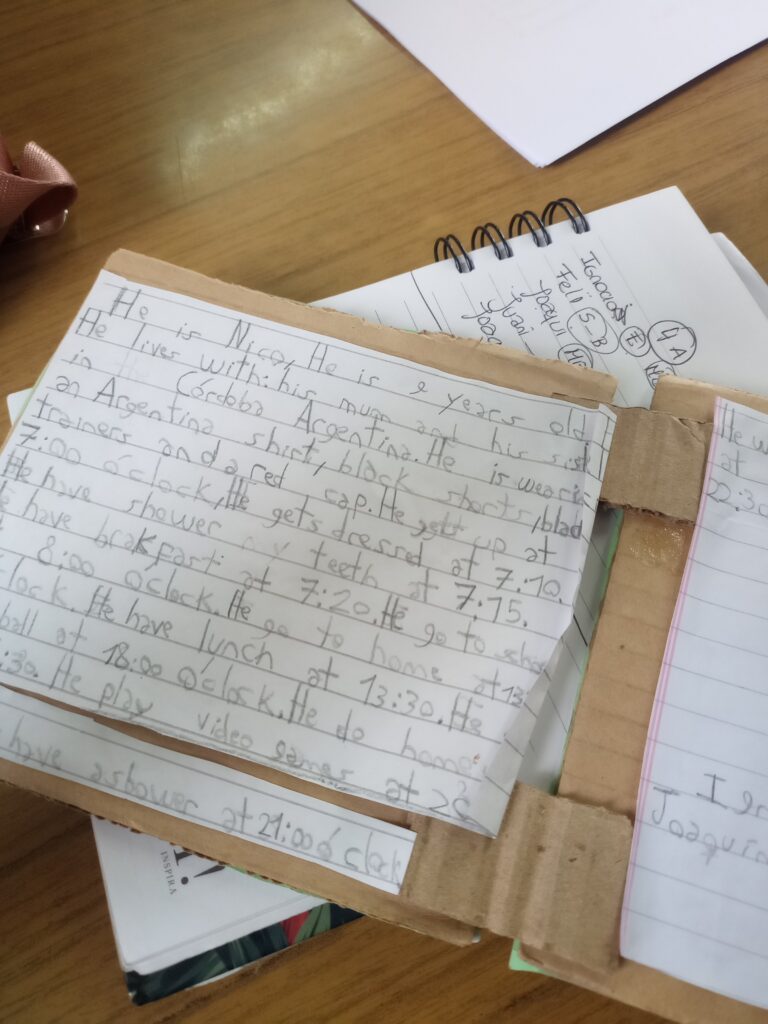 He is Nico, He is 9 years old
He lives with: his mum and his sist
in Córdoba Argentina. He is wearin
an Argentina shirt, black shorts, blad
trainers and a red cap. He gets up at
7:00 óclock, He gets dressed at 7:10.
He have shower my teeth at 7:15.
have brakfart at 7:20. He go to schoo
8:00 óclock. He go to home at 13
lock. He have lunch at 13:30. He
ball at 18:00 óclock. He do home
:30. He play video games at 20
have a shower at 21:00 ó clock
Ignacio E 4A
Feli S_B
Joaqui
Juani
Joac
He w
at
22:30
Joaquin
INSPIRA